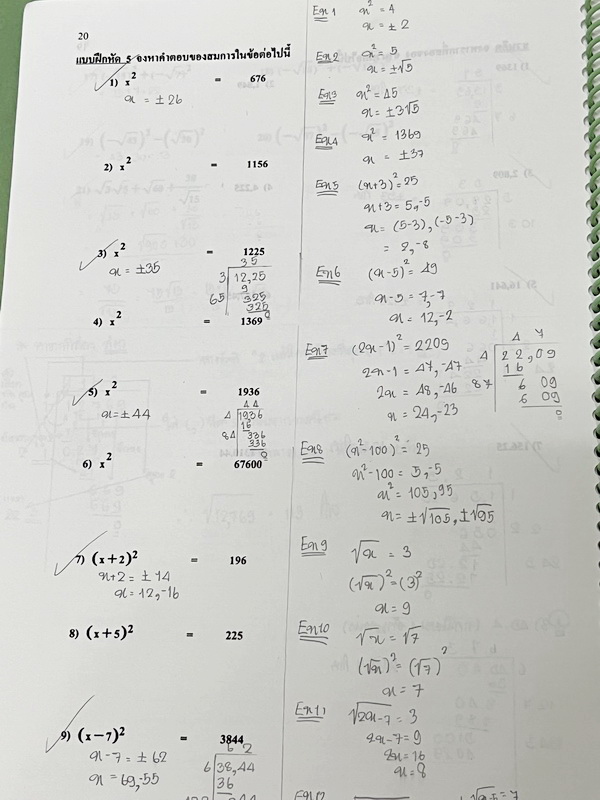 20
แบบฝึกหัด 5 จงหาคำตอบของสมการในข้อต่อไปนี้
1) x² = 676
x = ±26
2) x² = 1156
3) x² = 1225
x = ±35
35
3 12,25
9
65 325
325
0
4) x² = 1369
5) x² = 1936
x = ±44
44
4 1936
16
84 336
336
0
6) x² = 67600
7) (x+2)² = 196
x+2 = ±14
x = 12,-16
8) (x+5)² = 225
9) (x-7)² = 3844
x-7 = ±62
x = 69,-55
62
6 38,44
36
Ex 1 x² = 4
x = ±2
Ex2 x² = 5
x = ±√5
Ex3 x² = 45
x = ±3√5
Ex4 x² = 1369
x = ±37
Ex5 (x+3)² = 25
x+3 = 5,-5
x = (5-3),(-5-3)
= 2,-8
Ex6 (x-5)² = 49
x-5 = 7,-7
x = 12,-2
Ex7 (2x-1)² = 2209
2x-1 = 47,-47
2x = 48,-46
x = 24,-23
4 7
4 22,09
16
87 6 09
6 09
0
Ex8 (x²-100)² = 25
x²-100 = 5,-5
x² = 105,95
x = ±√105,±√95
Ex9 √x = 3
(√x)² = (3)²
x = 9
Ex10 √x = √7
(√x)² = (√7)²
x = 7
Ex11 √2x-7 = 3
2x-7 = 9
2x = 16
x = 8
Ex12